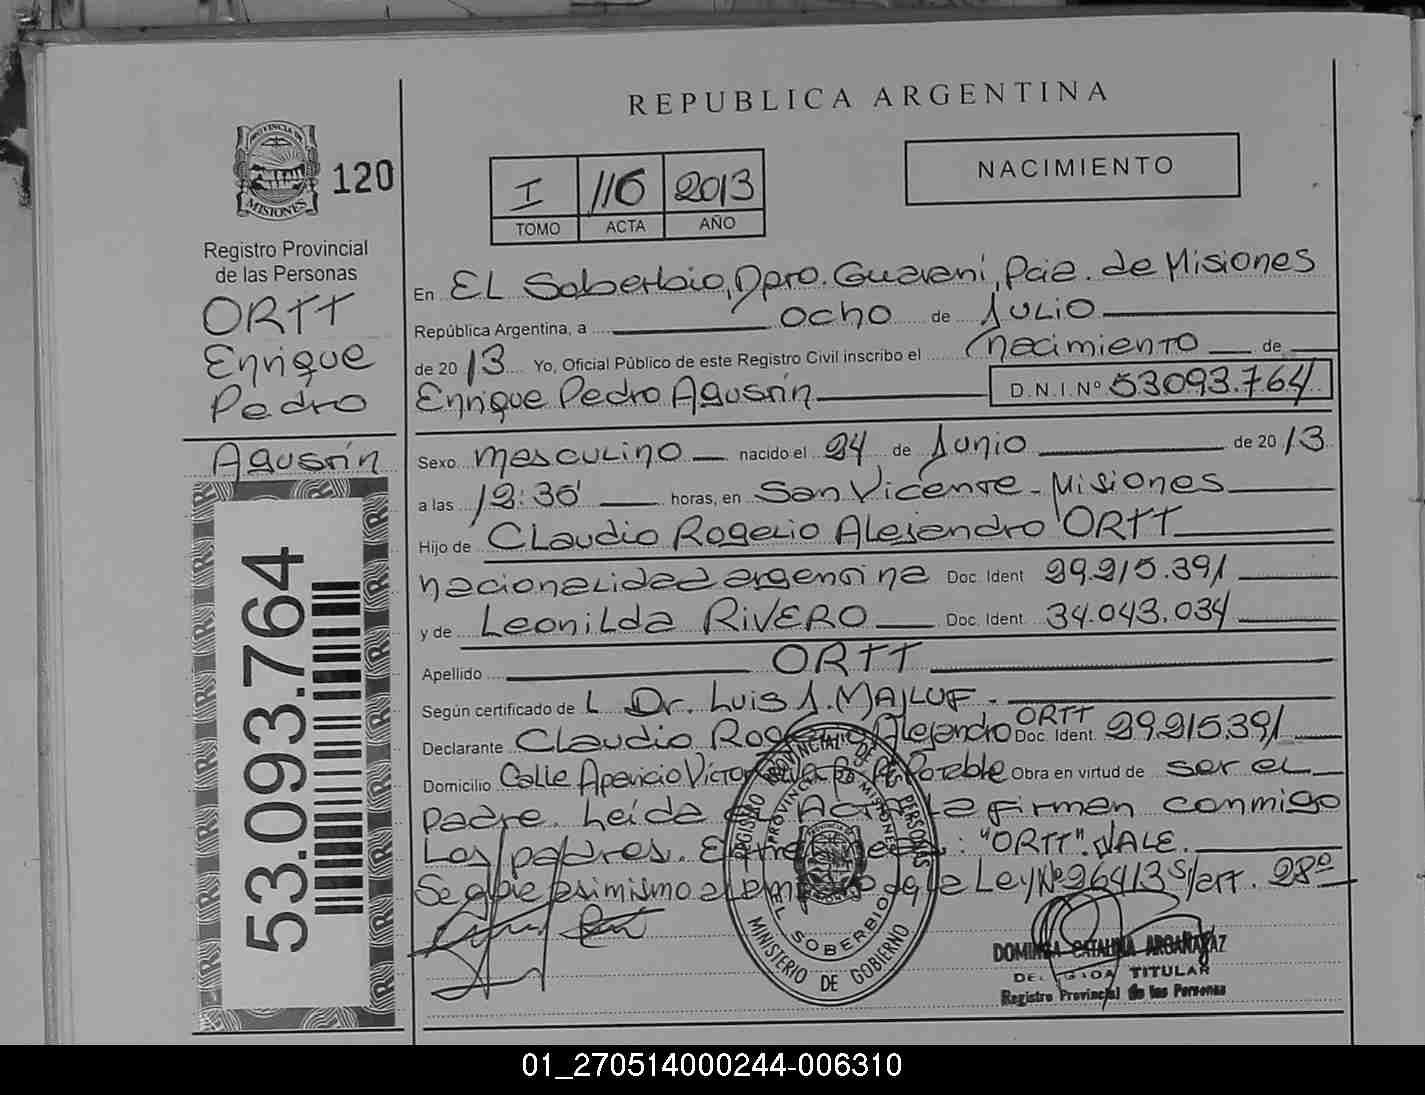 REPUBLICA ARGENTINA
PROVINCIA DE
MISIONES
120
Registro Provincial
de las Personas
ORTT
Enrique
Pedro
Agustín
53.093.764
I 116 2013
TOMO ACTA AÑO
NACIMIENTO
En EL Soberbio, Dpto. Guaraní, Pcia. de Misiones
República Argentina, a ocho de Julio
de 2013 Yo, Oficial Público de este Registro Civil inscribo el nacimiento de
Enrique Pedro Agustín D.N.I.Nº 53093.764
Sexo masculino nacido el 24 de Junio de 2013
a las 12:30' horas, en San Vicente - Misiones
Hijo de Claudio Rogelio Alejandro ORTT
nacionalidad argentina Doc. Ident 29.215.391
y de Leonilda RIVERO Doc. Ident. 34.043.034
Apellido ORTT
Según certificado de L Dr. Luis J. MAJLUF -
Declarante Claudio Rogelio Alejandro ORTT Doc. Ident. 29.215.391
Domicilio Calle Aparicio Potable Obra en virtud de ser el
padre. Leída el Acta la firman conmigo
Los padres. : "ORTT". VALE.
Se asimismo de la Ley Nº 26413 s/art. 28º
REGISTRO PROVINCIAL DE LAS PERSONAS
PROVINCIA DE MISIONES
EL SOBERBIO
MINISTERIO DE GOBIERNO
DOMINGA CATALINA ARGAÑARAZ
DELEGADA TITULAR
Registro Provincial de las Personas
01_270514000244-006310